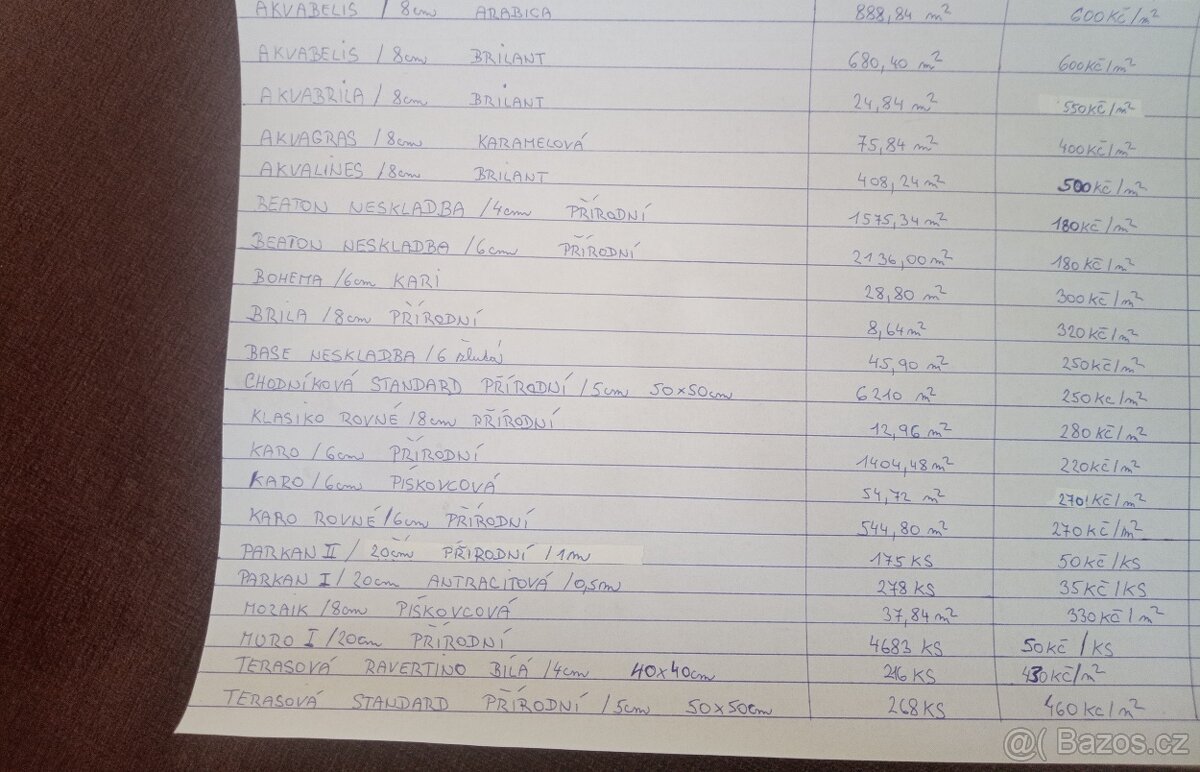 AKVABELIS / 8cm ARABICA 888,84 m² 600Kč/m²
AKVABELIS / 8cm BRILANT 680,40 m² 600Kč/m²
AKVABRILA / 8cm BRILANT 24,84 m² 550Kč/m²
AKVAGRAS / 8cm KARAMELOVÁ 75,84 m² 400Kč/m²
AKVALINES / 8cm BRILANT 408,24 m² 500Kč/m²
BEATON NESKLADBA / 4cm PŘÍRODNÍ 1575,34 m² 180Kč/m²
BEATON NESKLADBA / 6cm PŘÍRODNÍ 2136,00 m² 180Kč/m²
BOHEMA / 6cm KARI 28,80 m² 300Kč/m²
BRILA / 8cm PŘÍRODNÍ 8,64 m² 320Kč/m²
BASE NESKLADBA / 6 žlutá 45,90 m² 250Kč/m²
CHODNÍKOVÁ STANDARD PŘÍRODNÍ / 5cm 50x50cm 6210 m² 250Kc/m²
KLASIKO ROVNÉ / 8cm PŘÍRODNÍ 12,96 m² 280Kč/m²
KARO / 6cm PŘÍRODNÍ 1404,48 m² 220Kč/m²
KARO / 6cm PÍSKOVCOVÁ 54,72 m² 270Kč/m²
KARO ROVNÉ / 6cm PŘÍRODNÍ 544,80 m² 270Kč/m²
PARKAN II / 20cm PŘÍRODNÍ / 1m 175 KS 50Kč/KS
PARKAN I / 20cm ANTRACITOVÁ / 0,5m 278 KS 35Kč/KS
MOZAIK / 8cm PÍSKOVCOVÁ 37,84 m² 330Kč/m²
MURO I / 20cm PŘÍRODNÍ 4683 KS 50Kč/KS
TERASOVÁ RAVERTINO BÍLÁ / 4cm 40x40cm 216 KS 430Kč/m²
TERASOVÁ STANDARD PŘÍRODNÍ / 5cm 50x50cm 268 KS 460Kc/m²
@( Bazos.cz